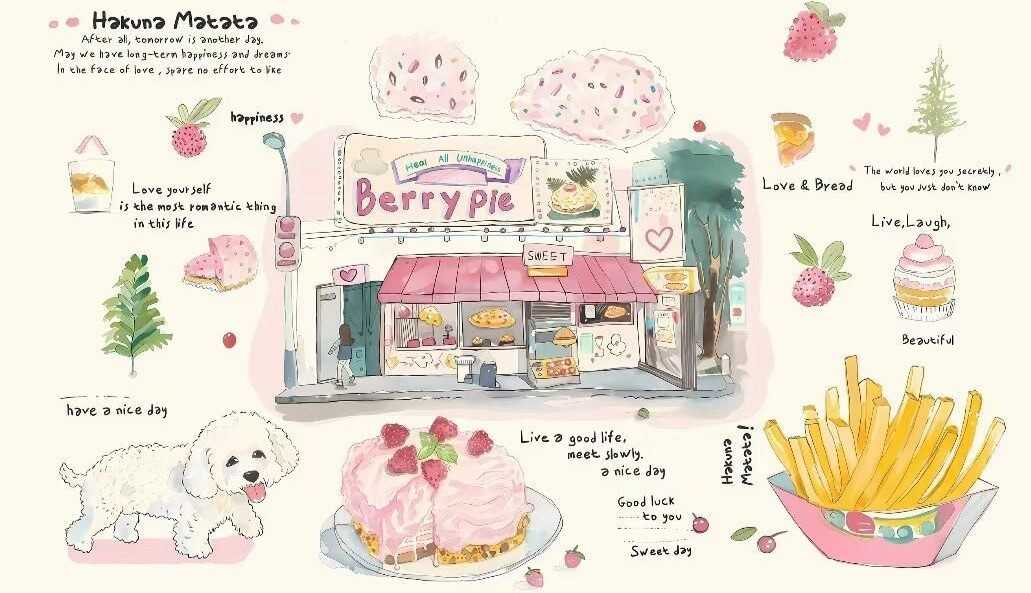 Hakuna Matata
After all, tomorrow is another day.
May we have long-term happiness and dreams
In the face of love , spare no effort to like
happiness
Love yourself
is the most romantic thing
in this life
Heal All Unhappiness
Berry pie
SWEET
Love & Bread
The world loves you secretly ,
but you just don't know
Live,Laugh,
Beautiful
have a nice day
Live a good life,
meet slowly.
a nice day
Good luck
to you
Sweet day
Hakuna
Matata!